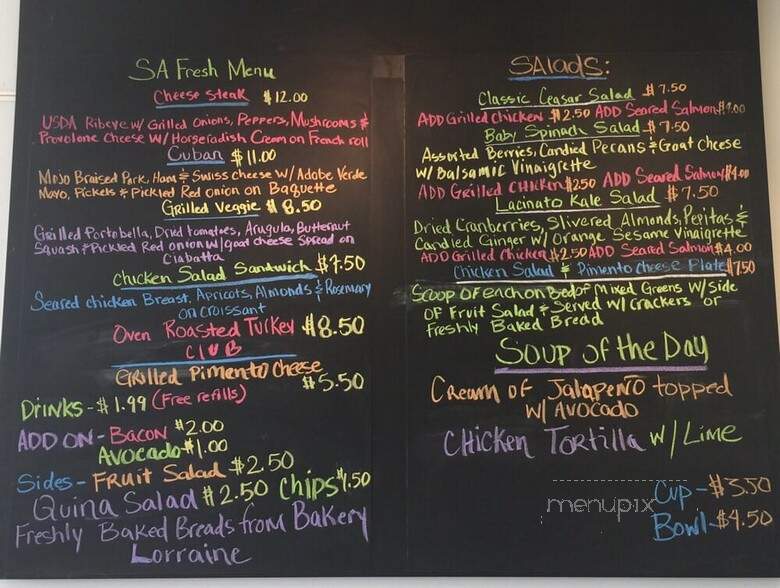 SA Fresh Menu
Cheese Steak $12.00
USDA Ribeye w/ Grilled Onions, Peppers, Mushrooms &
Provolone Cheese w/ Horseradish Cream on French roll
Cuban $11.00
Mojo Braised Pork, Ham & Swiss cheese w/ Adobe Verde
Mayo, Pickels & Pickled Red onion on Baguette
Grilled Veggie $8.50
Grilled Portobella, Dried tomatoes, Arugula, Butternut
Squash & Pickled Red onion w/ goat cheese Spread on
Ciabatta
Chicken Salad Sandwich $7.50
Seared chicken Breast, Apricots, Almonds & Rosemary
on croissant
Oven Roasted Turkey $8.50
Club
Grilled Pimento cheese
$5.50
Drinks - $1.99 (Free refills)
ADD ON - Bacon $2.00
Avocado $1.00
Sides - Fruit Salad $2.50
Quina Salad $2.50 Chips $1.50
Freshly Baked Breads from Bakery
Lorraine
SALADS:
Classic Ceasar Salad $7.50
ADD Grilled Chicken $2.50 ADD Seared Salmon $4.00
Baby Spinach Salad $7.50
Assorted Berries, Candied Pecans & Goat Cheese
w/ Balsamic Vinaigrette
ADD Grilled Chicken $2.50 ADD Seared Salmon $4.00
Lacinato Kale Salad $7.50
Dried Cranberries, Slivered Almonds, Pepitas &
Candied Ginger w/ Orange Sesame Vinaigrette
ADD Grilled Chicken $2.50 ADD Seared Salmon $4.00
Chicken Salad & Pimento Cheese Plate $7.50
Scoop of each on Bed of Mixed Greens w/ Side
of Fruit Salad & Served w/ Crackers or
Freshly Baked Bread
Soup of the Day
Cream of Jalapeño topped
w/ Avocado
Chicken Tortilla w/ Lime
menupix
Cup - $3.50
Bowl - $4.50